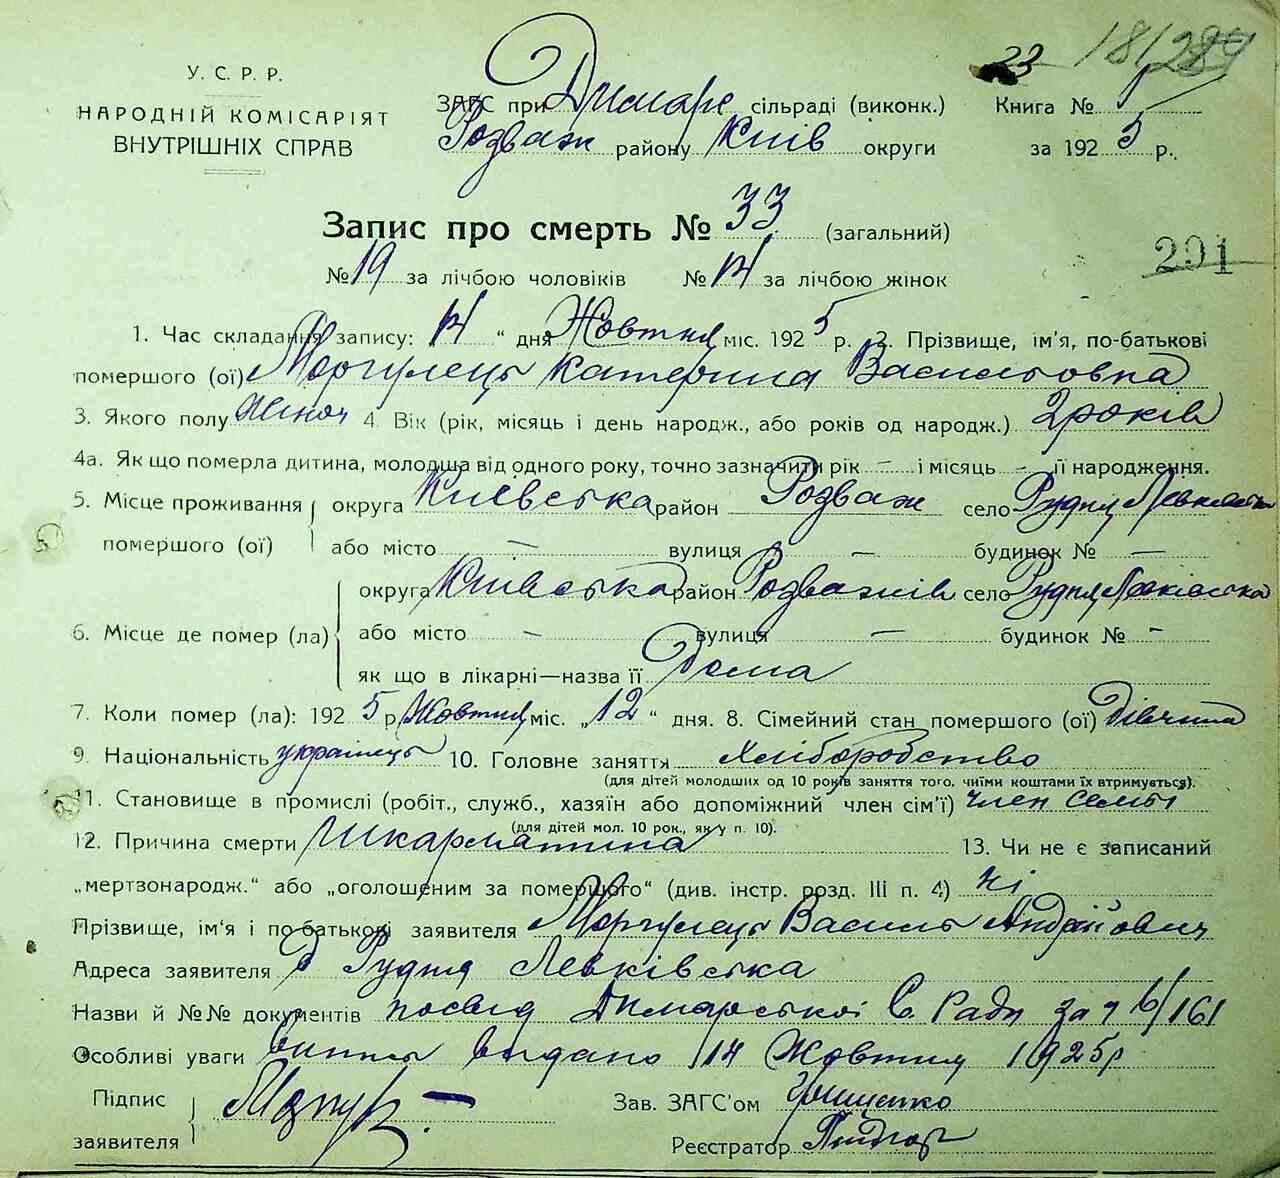 23 181 289
У. С. Р. Р.
НАРОДНІЙ КОМІСАРІЯТ
ВНУТРІШНІХ СПРАВ
ЗАГС при Димарк сільраді (виконк.) Книга №
Розваж району Київ округи за 1925 р.
Запис про смерть № 33 (загальний)
201
№ 19 за лічбою чоловіків № 14 за лічбою жінок
1. Час складання запису: 14 “ дня Жовтня міс. 1925 р. 2. Прізвище, ім'я, по-батькові
помершого (ої) Моргулець Катерина Васильовна
3. Якого полу Жіноч 4. Вік (рік, місяць і день народж., або років од народж.) 2 років
4а. Як що померла дитина, молодша від одного року, точно зазначити рік — і місяць — її народження.
5. Місце проживання помершого (ої) округа Київська район Розваж село Рудня Левківська
або місто — вулиця — будинок № —
6. Місце де помер (ла) округа Київська район Розважів село Рудня Левківська
або місто — вулиця — будинок № —
як що в лікарні—назва її Дома
7. Коли помер (ла): 1925 р Жовтня міс. „12“ дня. 8. Сімейний стан помершого (ої) Дівчина
9. Національність українець 10. Головне заняття Хліборобство
(для дітей молодших од 10 років заняття того, чиїми коштами їх втримується).
11. Становище в промислі (робіт., служб., хазяїн або допоміжний член сім'ї) член семьї
(для дітей мол. 10 рок., як у п. 10).
12. Причина смерти Шкарлатина 13. Чи не є записаний
„мертвонародж.“ або „оголошеним за помершого“ (див. інстр. розд. III п. 4) ні
Прізвище, ім'я і по-батькові заявителя Моргулець Василь Андрійович
Адреса заявителя Рудня Левківська
Назви й №№ документів посвід Димарської С. Ради за 161
Особливі уваги видано 14 Жовтня 1925 р
Підпис заявителя Зав. ЗАГС'ом Грищенко
Реєстратор